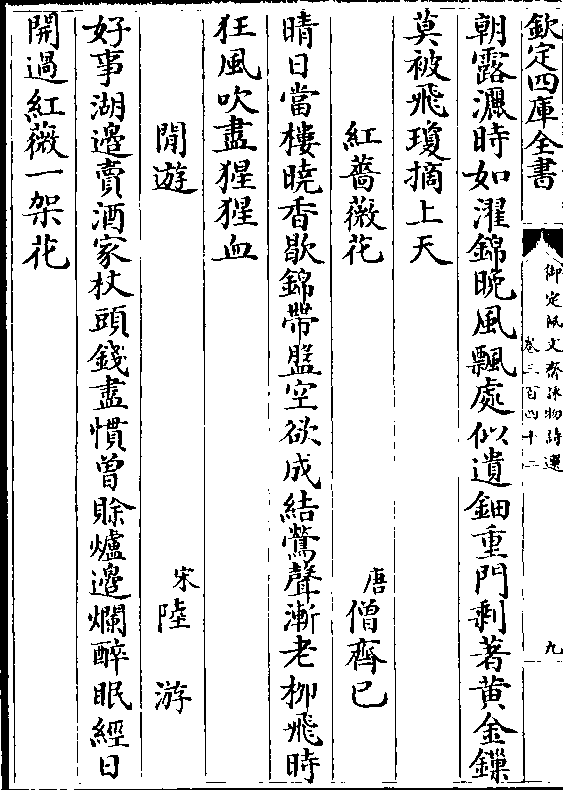 欽定四庫全書
御定佩文齋詠物詩選
卷三百四十二
九
朝露濕時如濯錦晩風飄處似遺鈿重門剩著黄金鏁
莫被飛瓊摘上天
紅薔薇花
唐僧齊已
晴日當樓曉香歇錦帶盤空欲成結鶯聲漸老柳飛時
狂風吹盡猩猩血
閒遊
宋陸游
好事湖邊賣酒家杖頭錢盡慣曾賒爐邊爛醉眠經日
開過紅薇一架花